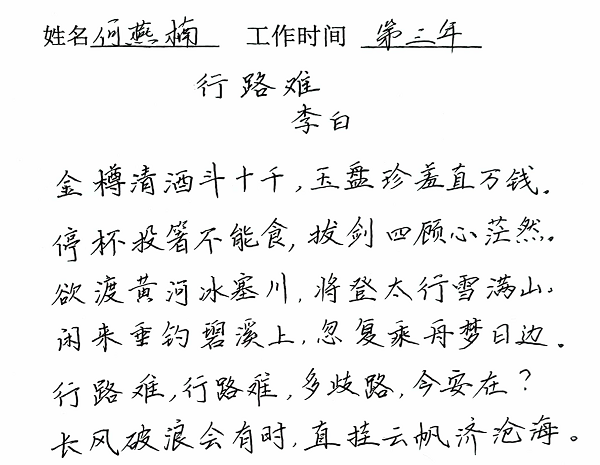 姓名何燕楠 工作时间 第三年
行路难
李白
金樽清酒斗十千,玉盘珍羞直万钱.
停杯投箸不能食,拔剑四顾心茫然.
欲渡黄河冰塞川,将登太行雪满山.
闲来垂钓碧溪上,忽复乘舟梦日边.
行路难,行路难,多歧路,今安在?
长风破浪会有时,直挂云帆济沧海。